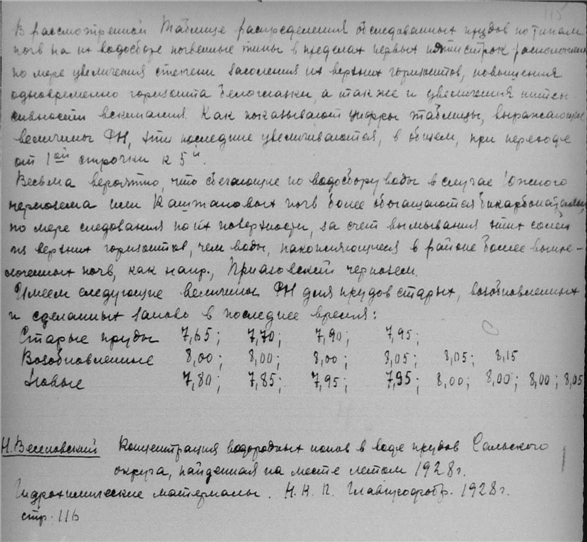 115
В рассмотренной таблице распределения обследованных прудов по типам
почв на их водосборе почвенные типы в пределах первых пяти строк расположены
по мере увеличения степени засоления их верхних горизонтов, повышения
одновременно горизонта белоглазки, а также и увеличения интен
сивности вскипания. Как показывают цифры таблицы, выражающие
величины РН, эти последние увеличиваются, в общем, при переходе
от 1ой строчки к 5й.
Весьма вероятно, что сбегающие по водосбору воды в случае Южного
чернозема или Каштановых почв более обогащаются бикарбонатами
по мере следования по их поверхности, за счет вымывания этих солей
из верхних горизонтов, чем воды, накопляющиеся в районе более выще-
лоченных почв, как напр., Приазовский чернозем.
Имеем следующие величины РН для прудов старых, возобновленных
и сделанных заново в последнее время:
Старые пруды 7,65; 7,70; 7,90; 7,95;
Возобновленные 8,00; 8,00; 8,00; 8,05; 8,05; 8,15
Новые 7,80; 7,85; 7,95; 7,95; 8,00; 8,00; 8,00; 8,05
Н. Веселовский Концентрация водородных ионов в воде прудов Сальского
округа, найденная на месте летом 1928 г.
Гидрохимические материалы. Н. И. П. 1928 г.
стр. 116